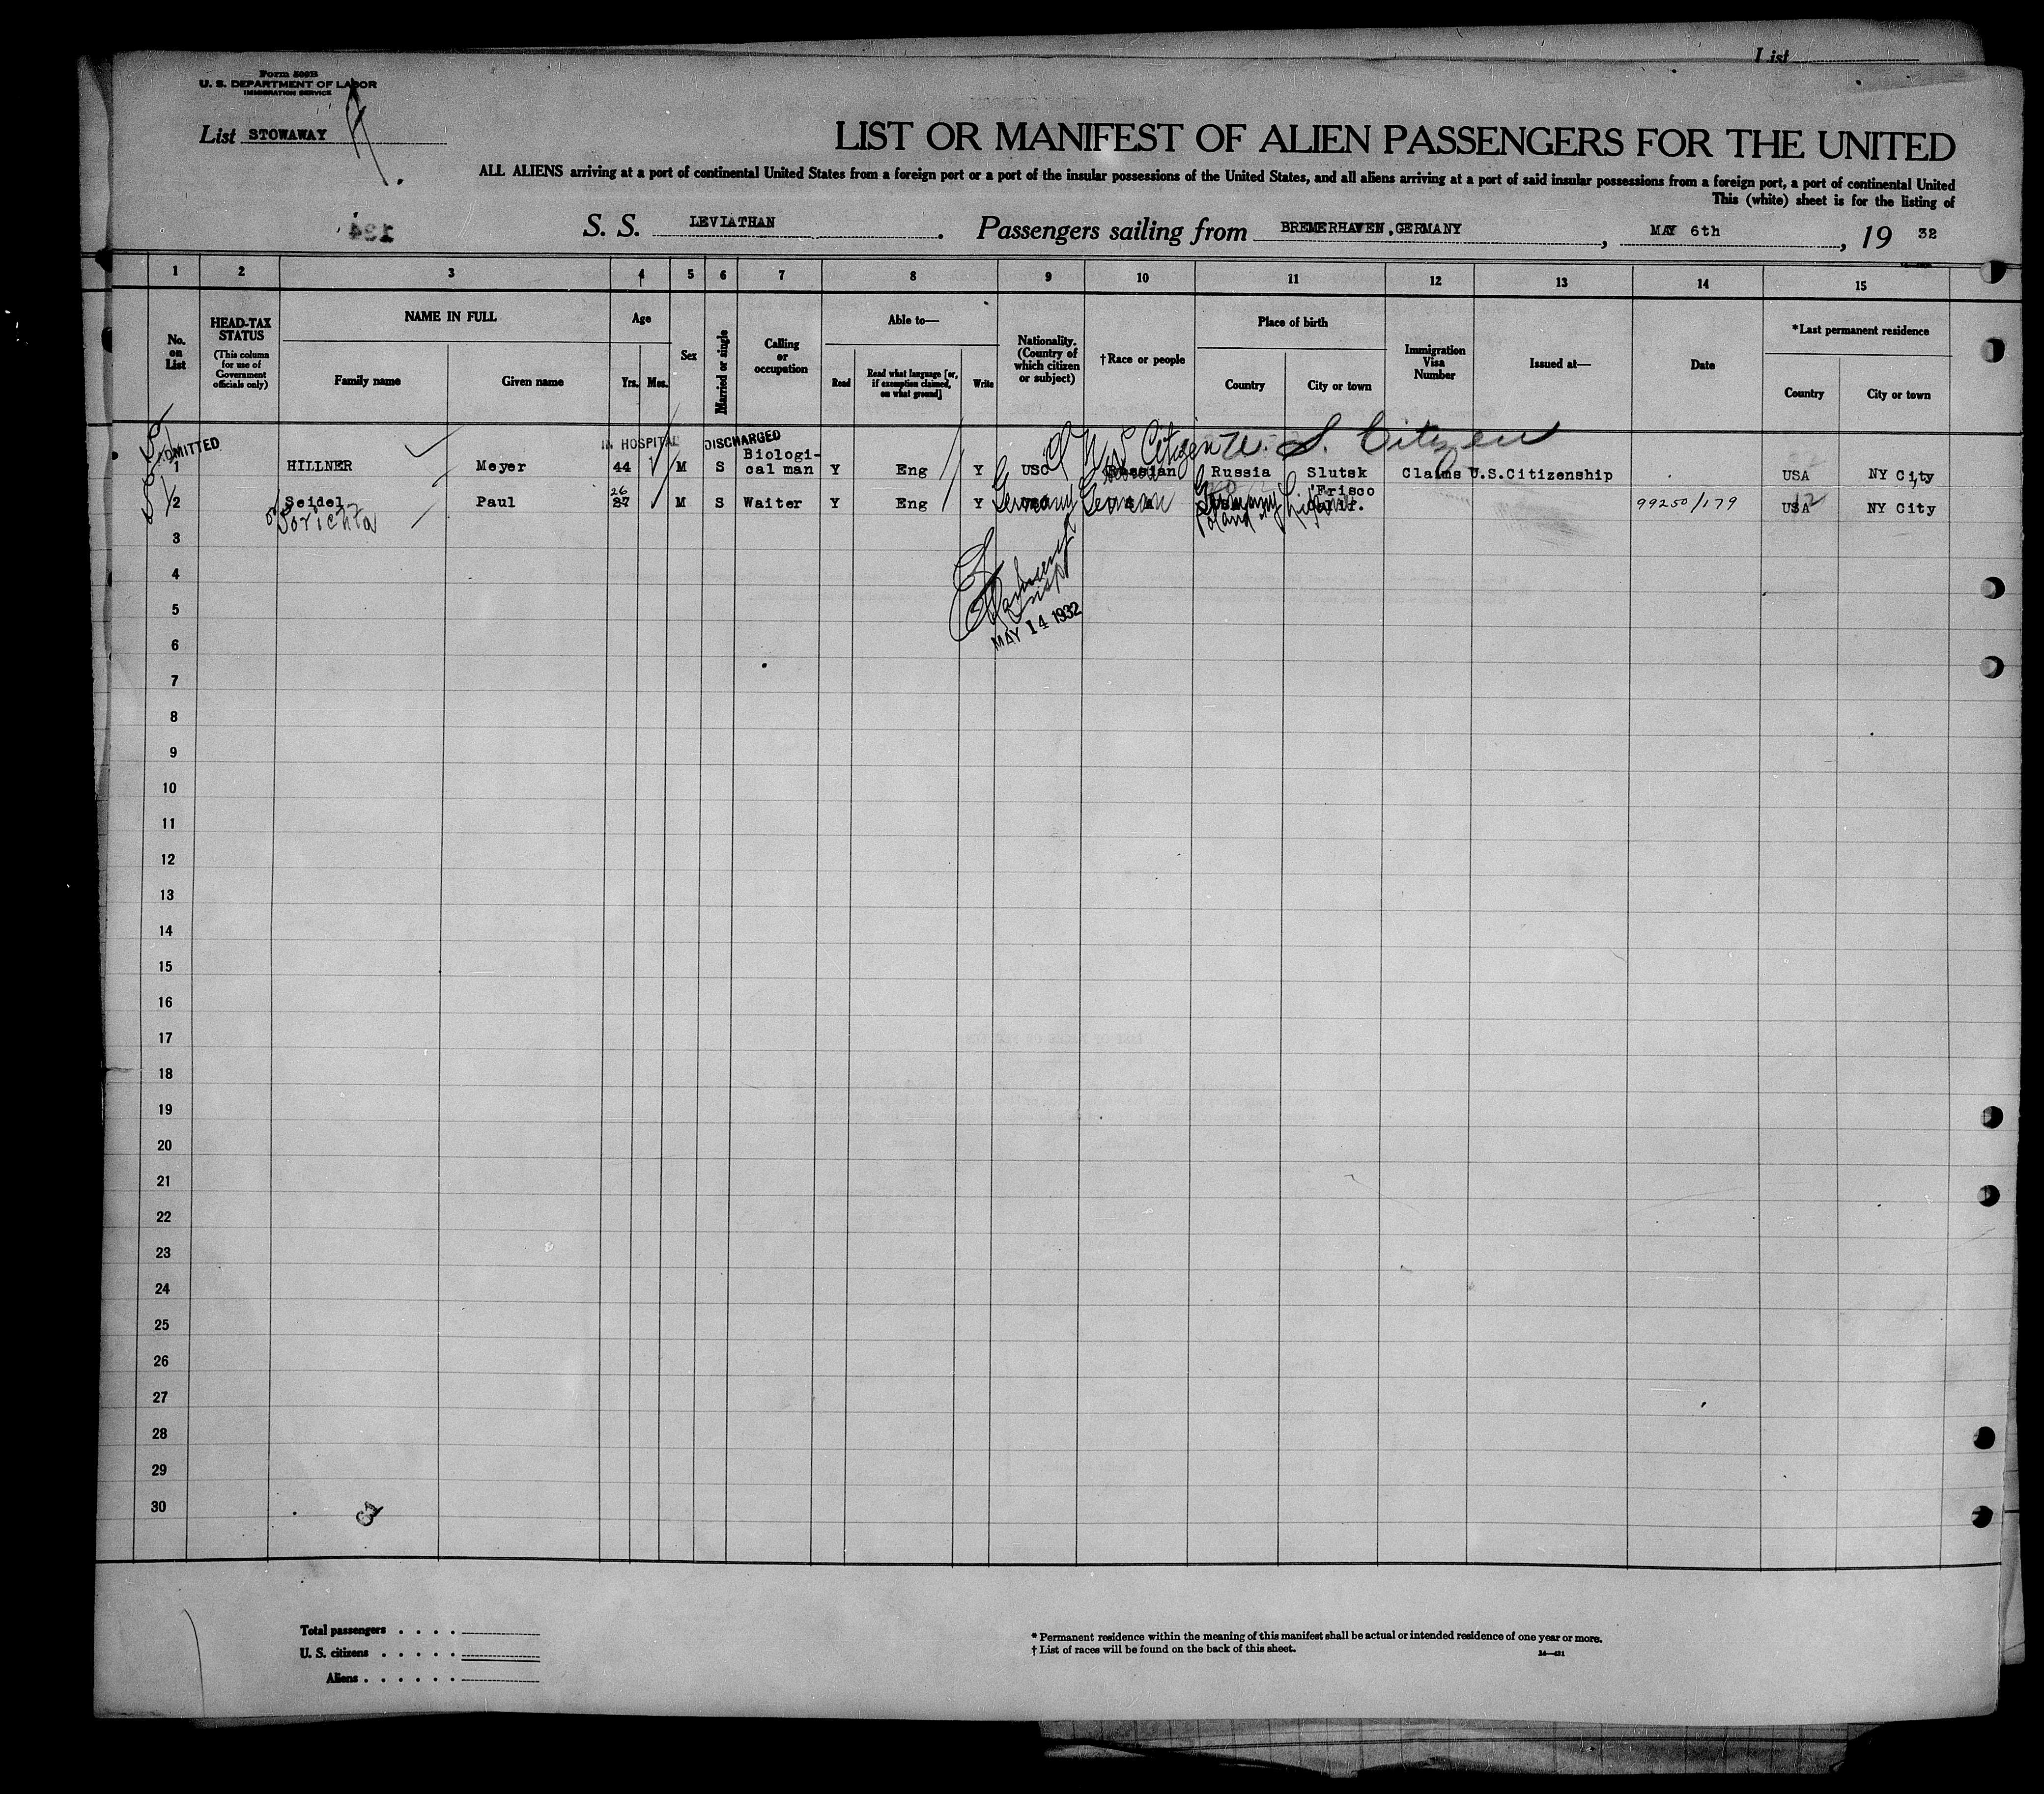 List
Form 500B
U. S. DEPARTMENT OF LABOR
IMMIGRATION SERVICE
List STOWAWAY
LIST OR MANIFEST OF ALIEN PASSENGERS FOR THE UNITED
ALL ALIENS arriving at a port of continental United States from a foreign port or a port of the insular possessions of the United States, and all aliens arriving at a port of said insular possessions from a foreign port, a port of continental United
This (white) sheet is for the listing of
S. S. LEVIATHAN. Passengers sailing from BREMERHAVEN, GERMANY, MAY 6th, 19 32
1 2 3 4 5 6 7 8 9 10 11 12 13 14 15
No. on List
HEAD-TAX STATUS
(This column for use of Government officials only)
NAME IN FULL
Family name
Given name
Age
Yrs. Mos.
Sex
Married or single
Calling or occupation
Able to—
Read
Read what language [or, if exemption claimed, on what ground]
Write
Nationality. (Country of which citizen or subject)
†Race or people
Place of birth
Country
City or town
Immigration Visa Number
Issued at—
Date
*Last permanent residence
Country
City or town
ADMITTED IN HOSPITAL DISCHARGED U S Citizen U. S. Citizen
1 HILLNER Meyer 44 M S Biological man Y Eng Y USC Russian Russia Slutsk Claims U.S.Citizenship USA NY City
2 Seidel Paul 26 27 M S Waiter Y Eng Y Germany German Germany 'Frisco Calif. 99250/179 USA NY City
or Sorichta Poland
3
4
5
MAY 14 1932
6
7
8
9
10
11
12
13
14
15
16
17
18
19
20
21
22
23
24
25
26
27
28
29
30
Total passengers . . . .
U. S. citizens . . . . .
Aliens . . . . . .
* Permanent residence within the meaning of this manifest shall be actual or intended residence of one year or more.
† List of races will be found on the back of this sheet.
14—421